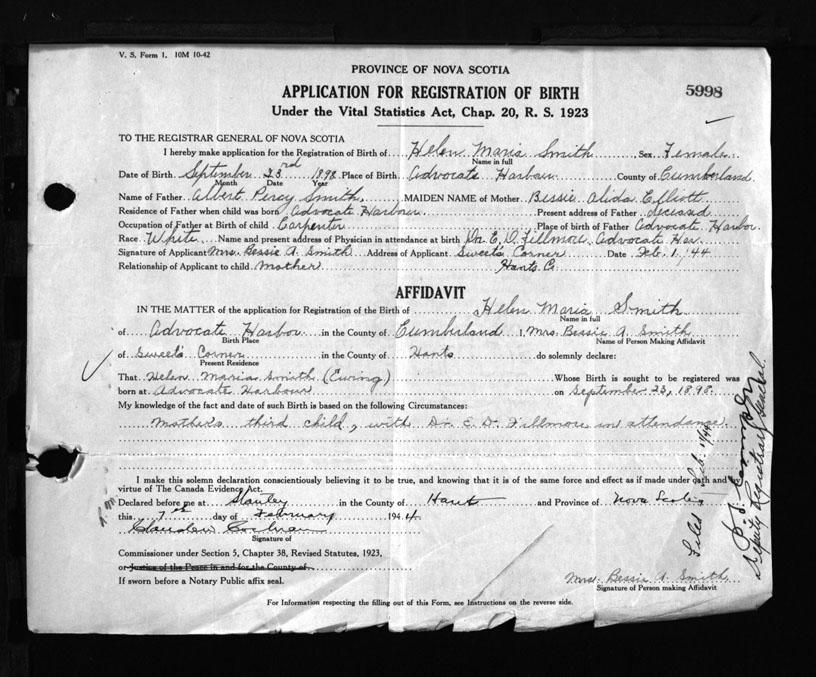 V. S. Form 1. 10M 10-42
PROVINCE OF NOVA SCOTIA
APPLICATION FOR REGISTRATION OF BIRTH
5998
Under the Vital Statistics Act, Chap. 20, R. S. 1923
TO THE REGISTRAR GENERAL OF NOVA SCOTIA
I hereby make application for the Registration of Birth of Helen Maria Smith Sex Female
Name in full
Date of Birth September 23rd 1898 Place of Birth Advocate Harbour County of Cumberland
Month Date Year
Name of Father Albert Percy Smith MAIDEN NAME of Mother Bessie Alida Elliott
Residence of Father when child was born Advocate Harbour Present address of Father deceased
Occupation of Father at Birth of child Carpenter Place of birth of Father Advocate Harbor
Race White Name and present address of Physician in attendance at birth Dr. E. D. Fillmore Advocate Har
Signature of Applicant Mrs. Bessie A. Smith Address of Applicant Sweet's Corner Date Feb. 1, '44
Relationship of Applicant to child Mother Hants Co
AFFIDAVIT
IN THE MATTER of the application for Registration of the Birth of Helen Maria Smith
Name in full
of Advocate Harbor in the County of Cumberland I, Mrs. Bessie A. Smith
Birth Place Name of Person Making Affidavit
of Sweet's Corner in the County of Hants do solemnly declare:
Present Residence
That Helen Maria Smith (Ewing) Whose Birth is sought to be registered was
born at Advocate Harbour on September 23, 1898.
My knowledge of the fact and date of such Birth is based on the following Circumstances:
Mother's third child, with Dr. E. D. Fillmore in attendance.
I make this solemn declaration conscientiously believing it to be true, and knowing that it is of the same force and effect as if made under oath and by
virtue of The Canada Evidence Act.
Declared before me at Stanley in the County of Hants and Province of Nova Scotia
this 7th day of February 1944
Cochran
Signature of
Commissioner under Section 5, Chapter 38, Revised Statutes, 1923,
or Justice of the Peace in and for the County of
If sworn before a Notary Public affix seal.
Mrs. Bessie A. Smith
Signature of Person making Affidavit
For Information respecting the filling out of this Form, see Instructions on the reverse side.
Filed Feb.
Deputy Registrar General.